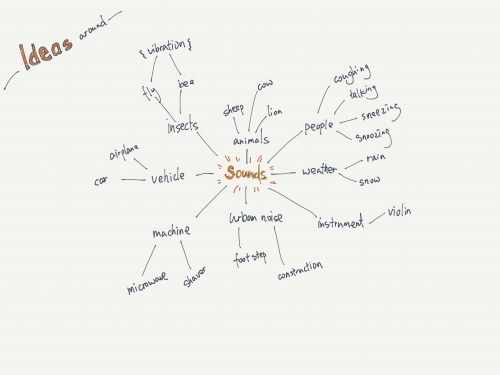 Ideas
around
{ vibration }
fly
bee
insects
sheep
cow
lion
animals
coughing
talking
sneezing
snoozing
people
airplane
car
vehicle
Sounds
weather
rain
snow
machine
microwave
shavor
urban noise
foot step
construction
instrument
violin